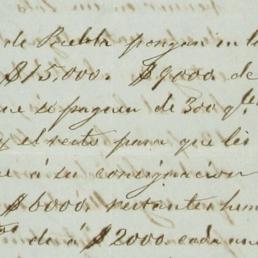 de Puebla pongan en la
$15,000. $9000 de
que se paguen de 300 qles
y el resto para que les
á su consignacion
$6000. restantes
de á $2000 cada un